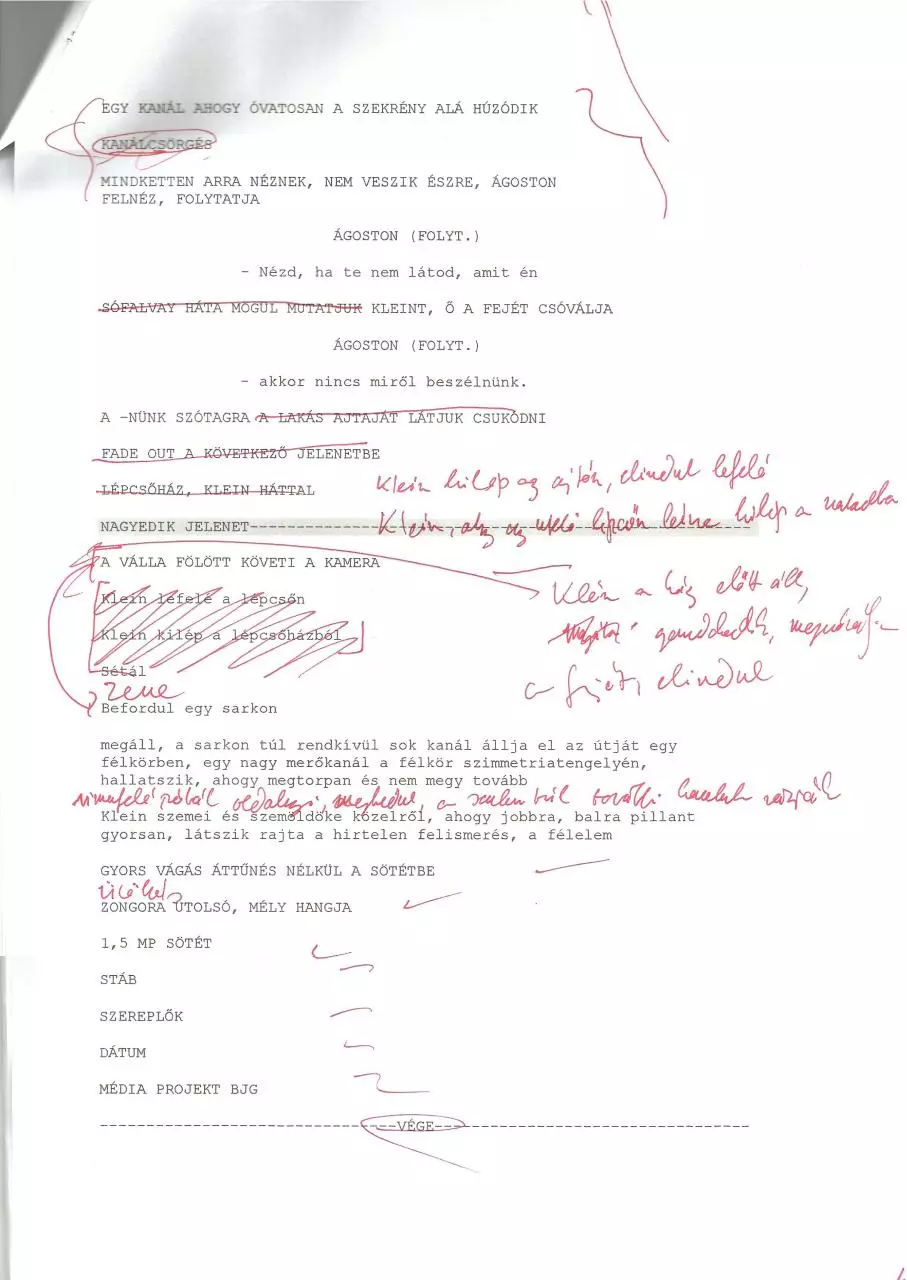 EGY KANÁL AHOGY ÓVATOSAN A SZEKRÉNY ALÁ HÚZÓDIK
KANÁLCSÖRGÉS
MINDKETTEN ARRA NÉZNEK, NEM VESZIK ÉSZRE, ÁGOSTON
FELNÉZ, FOLYTATJA
ÁGOSTON (FOLYT.)
- Nézd, ha te nem látod, amit én
SÓFALVAY HÁTA MÖGÜL MUTATJUK KLEINT, Ő A FEJÉT CSÓVÁLJA
ÁGOSTON (FOLYT.)
- akkor nincs miről beszélnünk.
A -NÜNK SZÓTAGRA A LAKÁS AJTAJÁT LÁTJUK CSUKÓDNI
FADE OUT A KÖVETKEZŐ JELENETBE
Klein kilép az ajtón, elindul lefelé
LÉPCSŐHÁZ, KLEIN HÁTTAL
NAGYEDIK JELENET------------------------------------------------------
Klein, az utolsó lépcsőn kilép a
A VÁLLA FÖLÖTT KÖVETI A KAMERA
Klein lefelé a lépcsőn
Klein a ház előtt áll,
Klein kilép a lépcsőházból
gondolkodik,
Sétál
a fejét, elindul
Zene
Befordul egy sarkon
megáll, a sarkon túl rendkívül sok kanál állja el az útját egy
félkörben, egy nagy merőkanál a félkör szimmetriatengelyén,
hallatszik, ahogy megtorpan és nem megy tovább
a sarkon túl további kanalak
Klein szemei és szemöldöke közelről, ahogy jobbra, balra pillant
gyorsan, látszik rajta a hirtelen felismerés, a félelem
GYORS VÁGÁS ÁTTŰNÉS NÉLKÜL A SÖTÉTBE
ZONGORA UTOLSÓ, MÉLY HANGJA
1,5 MP SÖTÉT
STÁB
SZEREPLŐK
DÁTUM
MÉDIA PROJEKT BJG
--------------------------------VÉGE----------------------------------